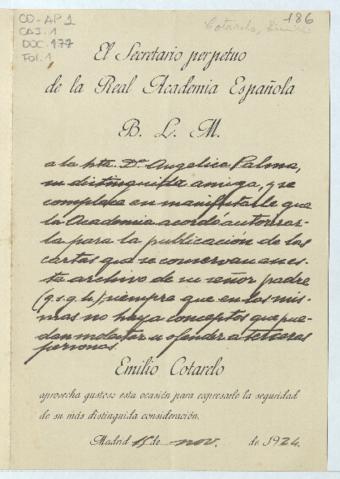 CO-AP 1
CAJ. 1
DOC. 177
Fol. 1
186
Cotarelo, Emilio
El Secretario perpetuo
de la Real Academia Española
B. L. M.
a la Srta. Dª Angelica Palma,
su distinguida amiga, y se
complace en manifestarle que
la Academia acordó autorizar-
la para la publicación de las
cartas que se conservan en es-
te archivo de su señor padre
(q.s.g.h.) siempre que en las mis-
mas no haya conceptos que pue-
dan molestar u ofender a terceras
personas.
Emilio Cotarelo
aprovecha gustoso esta ocasión para expresarle la seguridad
de su más distinguida consideración.
Madrid 15 de nov. de 1924.